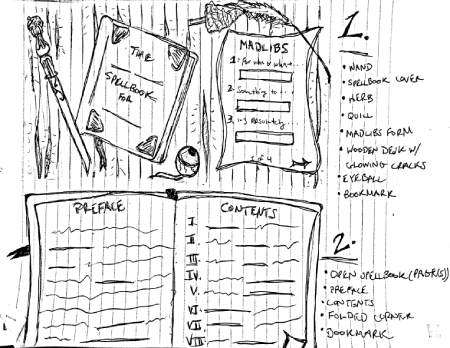 THE
SPELLBOOK
FOR
MADLIBS
1. For who or what...
2. Something to...
3. Absolutely
1 of 4
1.
• WAND
• SPELLBOOK COVER
• HERB
• QUILL
• MADLIBS FORM
• WOODEN DESK W/
GLOWING CRACKS
• EYEBALL
• BOOKMARK
PREFACE
CONTENTS
I.
II.
III.
IV.
V.
VI.
VII.
VIII
2.
• OPEN SPELLBOOK (PAGE(S))
• PREFACE
• CONTENTS
• FOLDED CORNER
• BOOKMARK